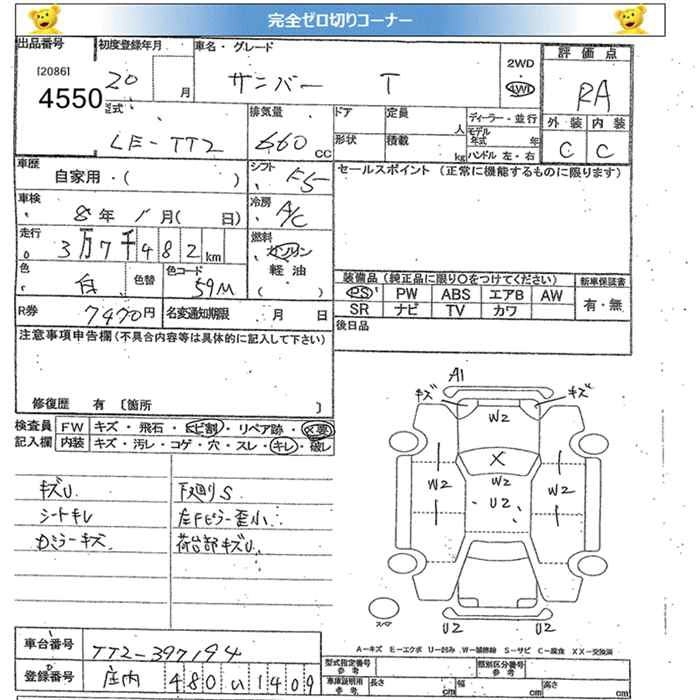 完全ゼロ切りコーナー
出品番号 初度登録年月 車名・グレード
[2086] 4550
20 月 サンバー T
2WD 4WD
評価点
RA
型式 LE-TT2
排気量 660 CC
ドア 定員 人
形状 積載 kg
ディーラー・並行
モデル年式 年
ハンドル 左・右
外装 内装
C C
車歴 自家用・( )
シフト F5
セールスポイント (正常に機能するものに限ります)
車検 8年 1月( 日)
冷房 A/C
走行 3万7千482km
燃料 ガソリン
軽油
( )
色 白 色替 色コード 59M
装備品 (純正品に限り○をつけてください) 新車保証書
PS PW ABS エアB AW 有・無
SR ナビ TV カワ
R券 7470円 名変通知期限 月 日
後日品
注意事項申告欄(不具合内容等は具体的に記入して下さい)
修復歴 有 〔箇所 〕
検査員 FW キズ・飛石・ヒビ割・リペア跡・X要
記入欄 内装 キズ・汚レ・コゲ・穴・スレ・キレ・破レ
キズU 下廻りS
シートキレ 左Fピラー歪小
Dミラーキズ 荷台部キズU
A1
キズ キズ
W2
X
W2 W2 W2
U2
スペア
U2 U2
A-キズ E-エクボ U-凹み W-補修跡 S-サビ C-腐食 XX-交換済
車台番号 TT2-397194
登録番号 庄内 480 い 1409
型式指定番号 参考 類別区分番号 参考
車庫証明用 参考 長さ cm 幅 cm 高さ cm